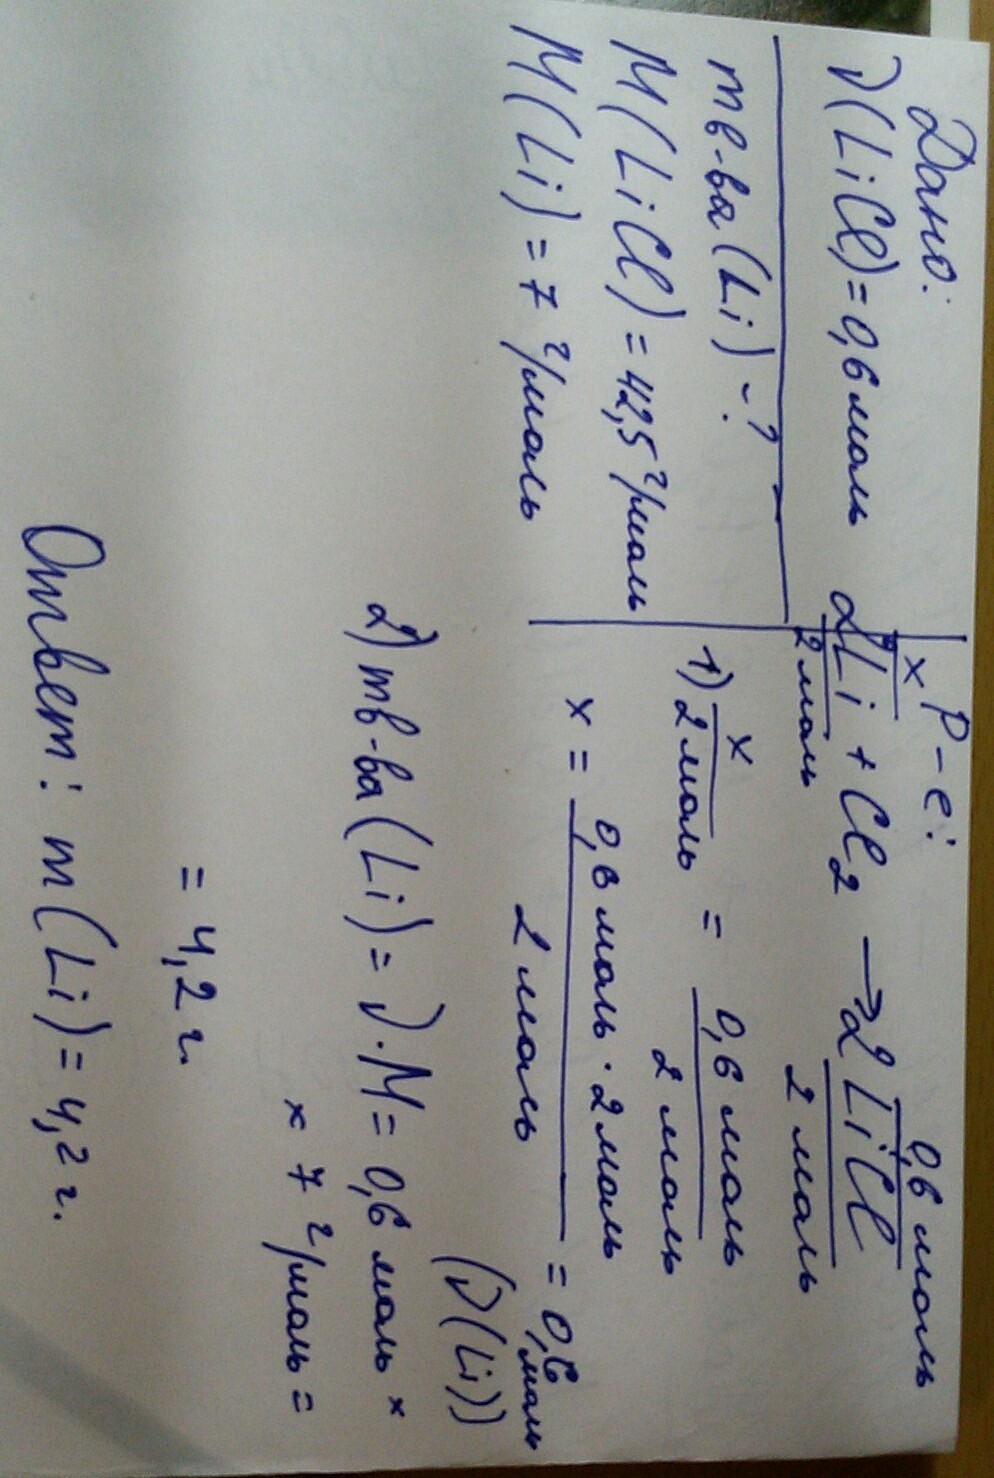 Дано:
ν(LiCl)=0,6 моль
mв-ва(Li)-?
M(LiCl)=42,5 г/моль
M(Li)=7 г/моль
р-е:
x 0,6 моль
2Li + Cl2 → 2LiCl
2 моль 2 моль
1) x/2 моль = 0,6 моль/2 моль
x = 0,6 моль · 2 моль/2 моль = 0,6 моль
(ν(Li))
2) mв-ва(Li)= ν·M= 0,6 моль ×
× 7 г/моль =
= 4,2 г.
Ответ: m(Li)=4,2 г.